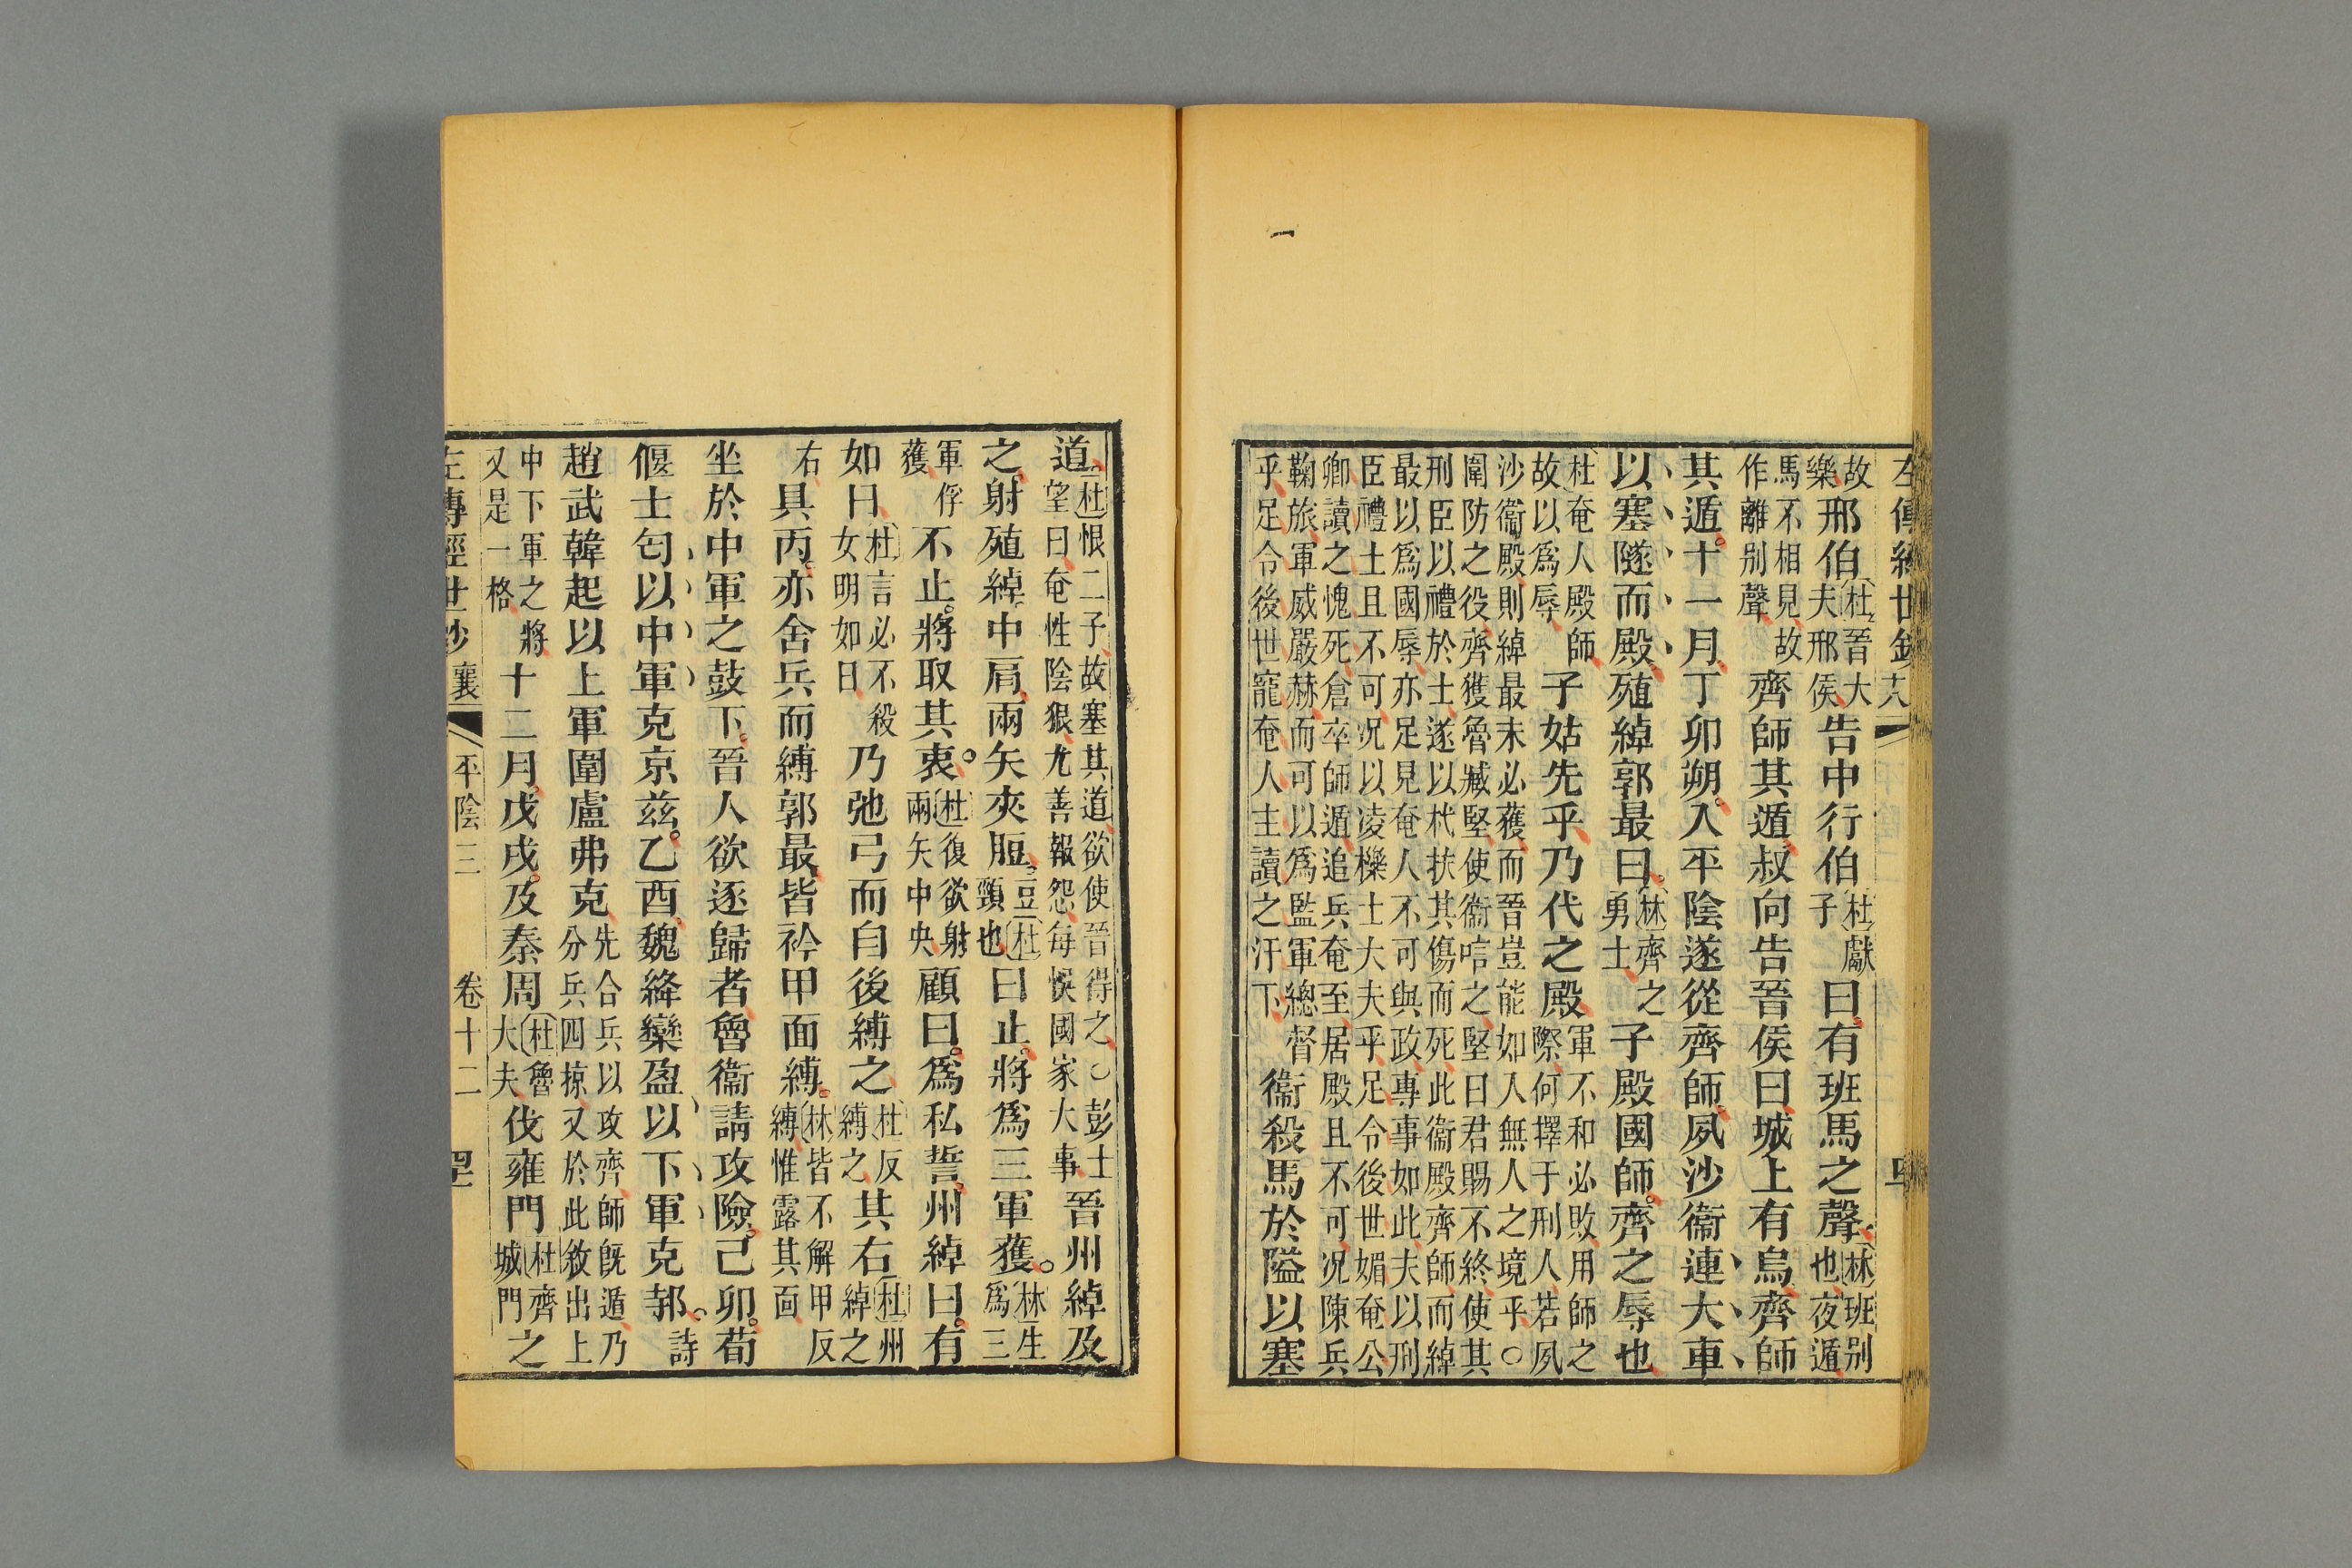 左傳經世鈔
故樂邢伯杜晉大夫邢侯告中行伯杜獻子曰有班馬之聲林班别也夜遁
馬不相見故作離别聲齊師其遁叔向告晉侯曰城上有烏齊師
其遁十一月丁卯朔入平陰遂從齊師夙沙衞連大車
以塞隧而殿殖綽郭最曰林齊之勇士子殿國師齊之辱也
杜奄人殿師故以爲辱子姑先乎乃代之殿軍不和必敗用師之際何擇于刑人若夙
沙衞殿則綽最未必獲而晉豈能如入無人之境乎○圍防之役齊獲魯臧堅使衞唁之堅曰君賜不終使其
刑臣以禮於士遂以杙抉其傷而死此衞殿齊師而綽最以爲國辱亦足見奄人不可與政專事如此夫以刑
臣禮士且不可况以凌櫟士大夫乎足令後世媚奄公卿讀之愧死倉卒師遁追兵奄至居殿且不可况陳兵
鞠旅軍威嚴赫而可以爲監軍總督乎足令後世寵奄人主讀之汗下衞殺馬於隘以塞
道杜恨二子故塞其道欲使晉得之○彭士望曰奄性陰狠尤善報怨每悞國家大事晉州綽及
之射殖綽中肩兩矢夾脰豆杜頸也曰止將爲三軍獲林生爲三
軍俘獲不止將取其衷杜復欲射兩矢中央顧曰爲私誓州綽曰有
如日杜言必不殺女明如日乃弛弓而自後縛之杜反縛之其右杜州綽之
右具丙亦舍兵而縛郭最皆衿甲面縛林皆不解甲反縛惟露其面
坐於中軍之鼓下晉人欲逐歸者魯衞請攻險己卯荀
偃士匄以中軍克京茲乙酉魏絳欒盈以下軍克邿詩
趙武韓起以上軍圍盧弗克先合兵以攻齊師旣遁乃分兵四掠又於此敘出上
中下軍之將又是一格十二月戊戌及秦周杜魯大夫伐雍門杜齊城門之
左傳經世鈔 襄 平陰三 卷十二